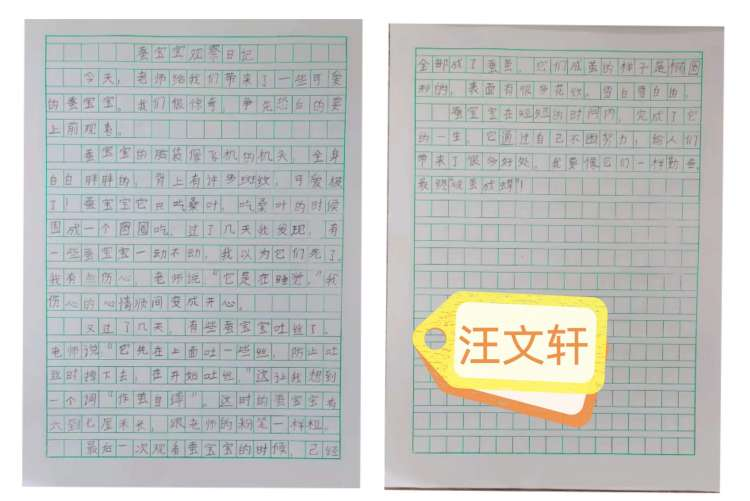 蚕宝宝观察日记
今天，老师给我们带来了一些可爱
的蚕宝宝。我们很惊奇，争先恐后的要
上前观看。
蚕宝宝的脑袋像飞机的机头，全身
白白胖胖的，背上有许多斑纹，可爱极
了！蚕宝宝它只吃桑叶，吃桑叶的时候
围成一个圆圈吃。过了几天我发现，有
一些蚕宝宝一动不动，我以为它们死了，
我有点伤心。老师说：“它是在睡觉。”我
伤心的心情顺间变成开心。
又过了几天，有些蚕宝宝吐丝了。
老师说“它先在上面吐一些丝，防止吐
丝时掉下去，在开始吐丝。”这让我想到
一个词“作茧自缚”。这时的蚕宝宝有
六到七厘米长，跟老师的粉笔一样粗。
最后一次观看蚕宝宝的时候，已经
全部成了蚕茧。它们成茧的样子是椭圆
形的，表面有很多花纹，雪白雪白的。
蚕宝宝在短短的时间内，完成了它
的一生。它通过自己不断努力，给人们
带来了很多好处。我要像它们一样勤奋，
最终“破茧成蝶”！
汪文轩